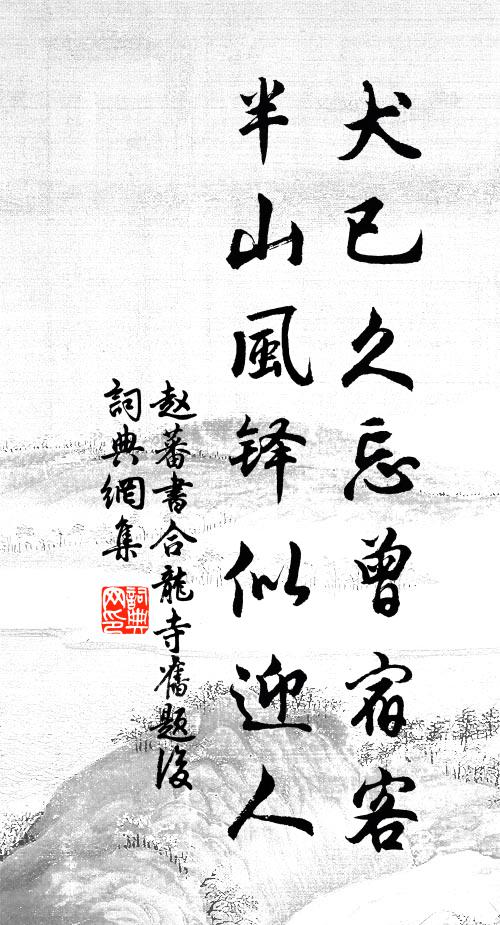 犬已久忘曾宿客
半山風铎似迎人
赵蕃書合龍寺舊题後
詞典網集
詞典
网印